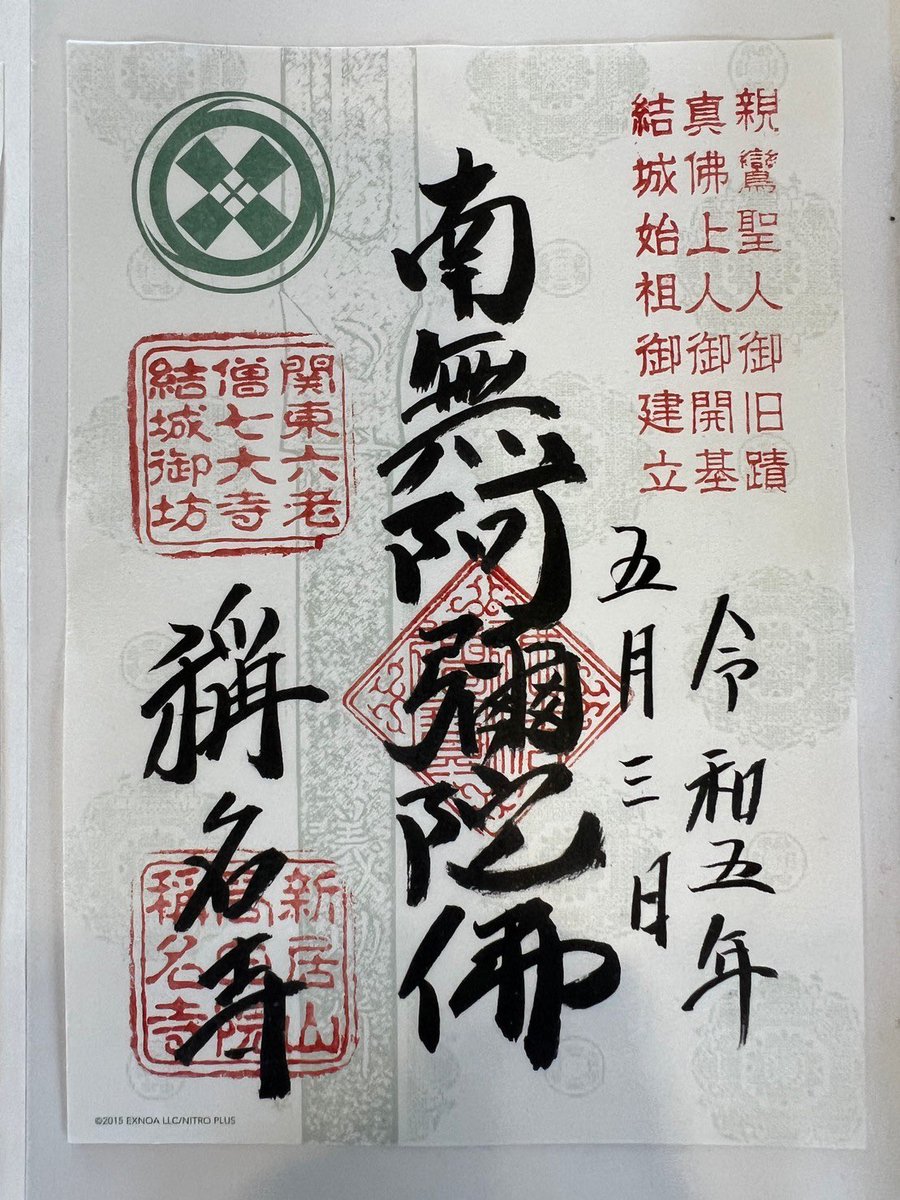 親鸞聖人御旧蹟
真佛上人御開基
結城始祖御建立
令和五年
五月三日
南無阿彌陀佛
関東六老
僧七大寺
結城御坊
稱名寺
新居山
稱名寺
©2015 EXNOA LLC/NITRO PLUS